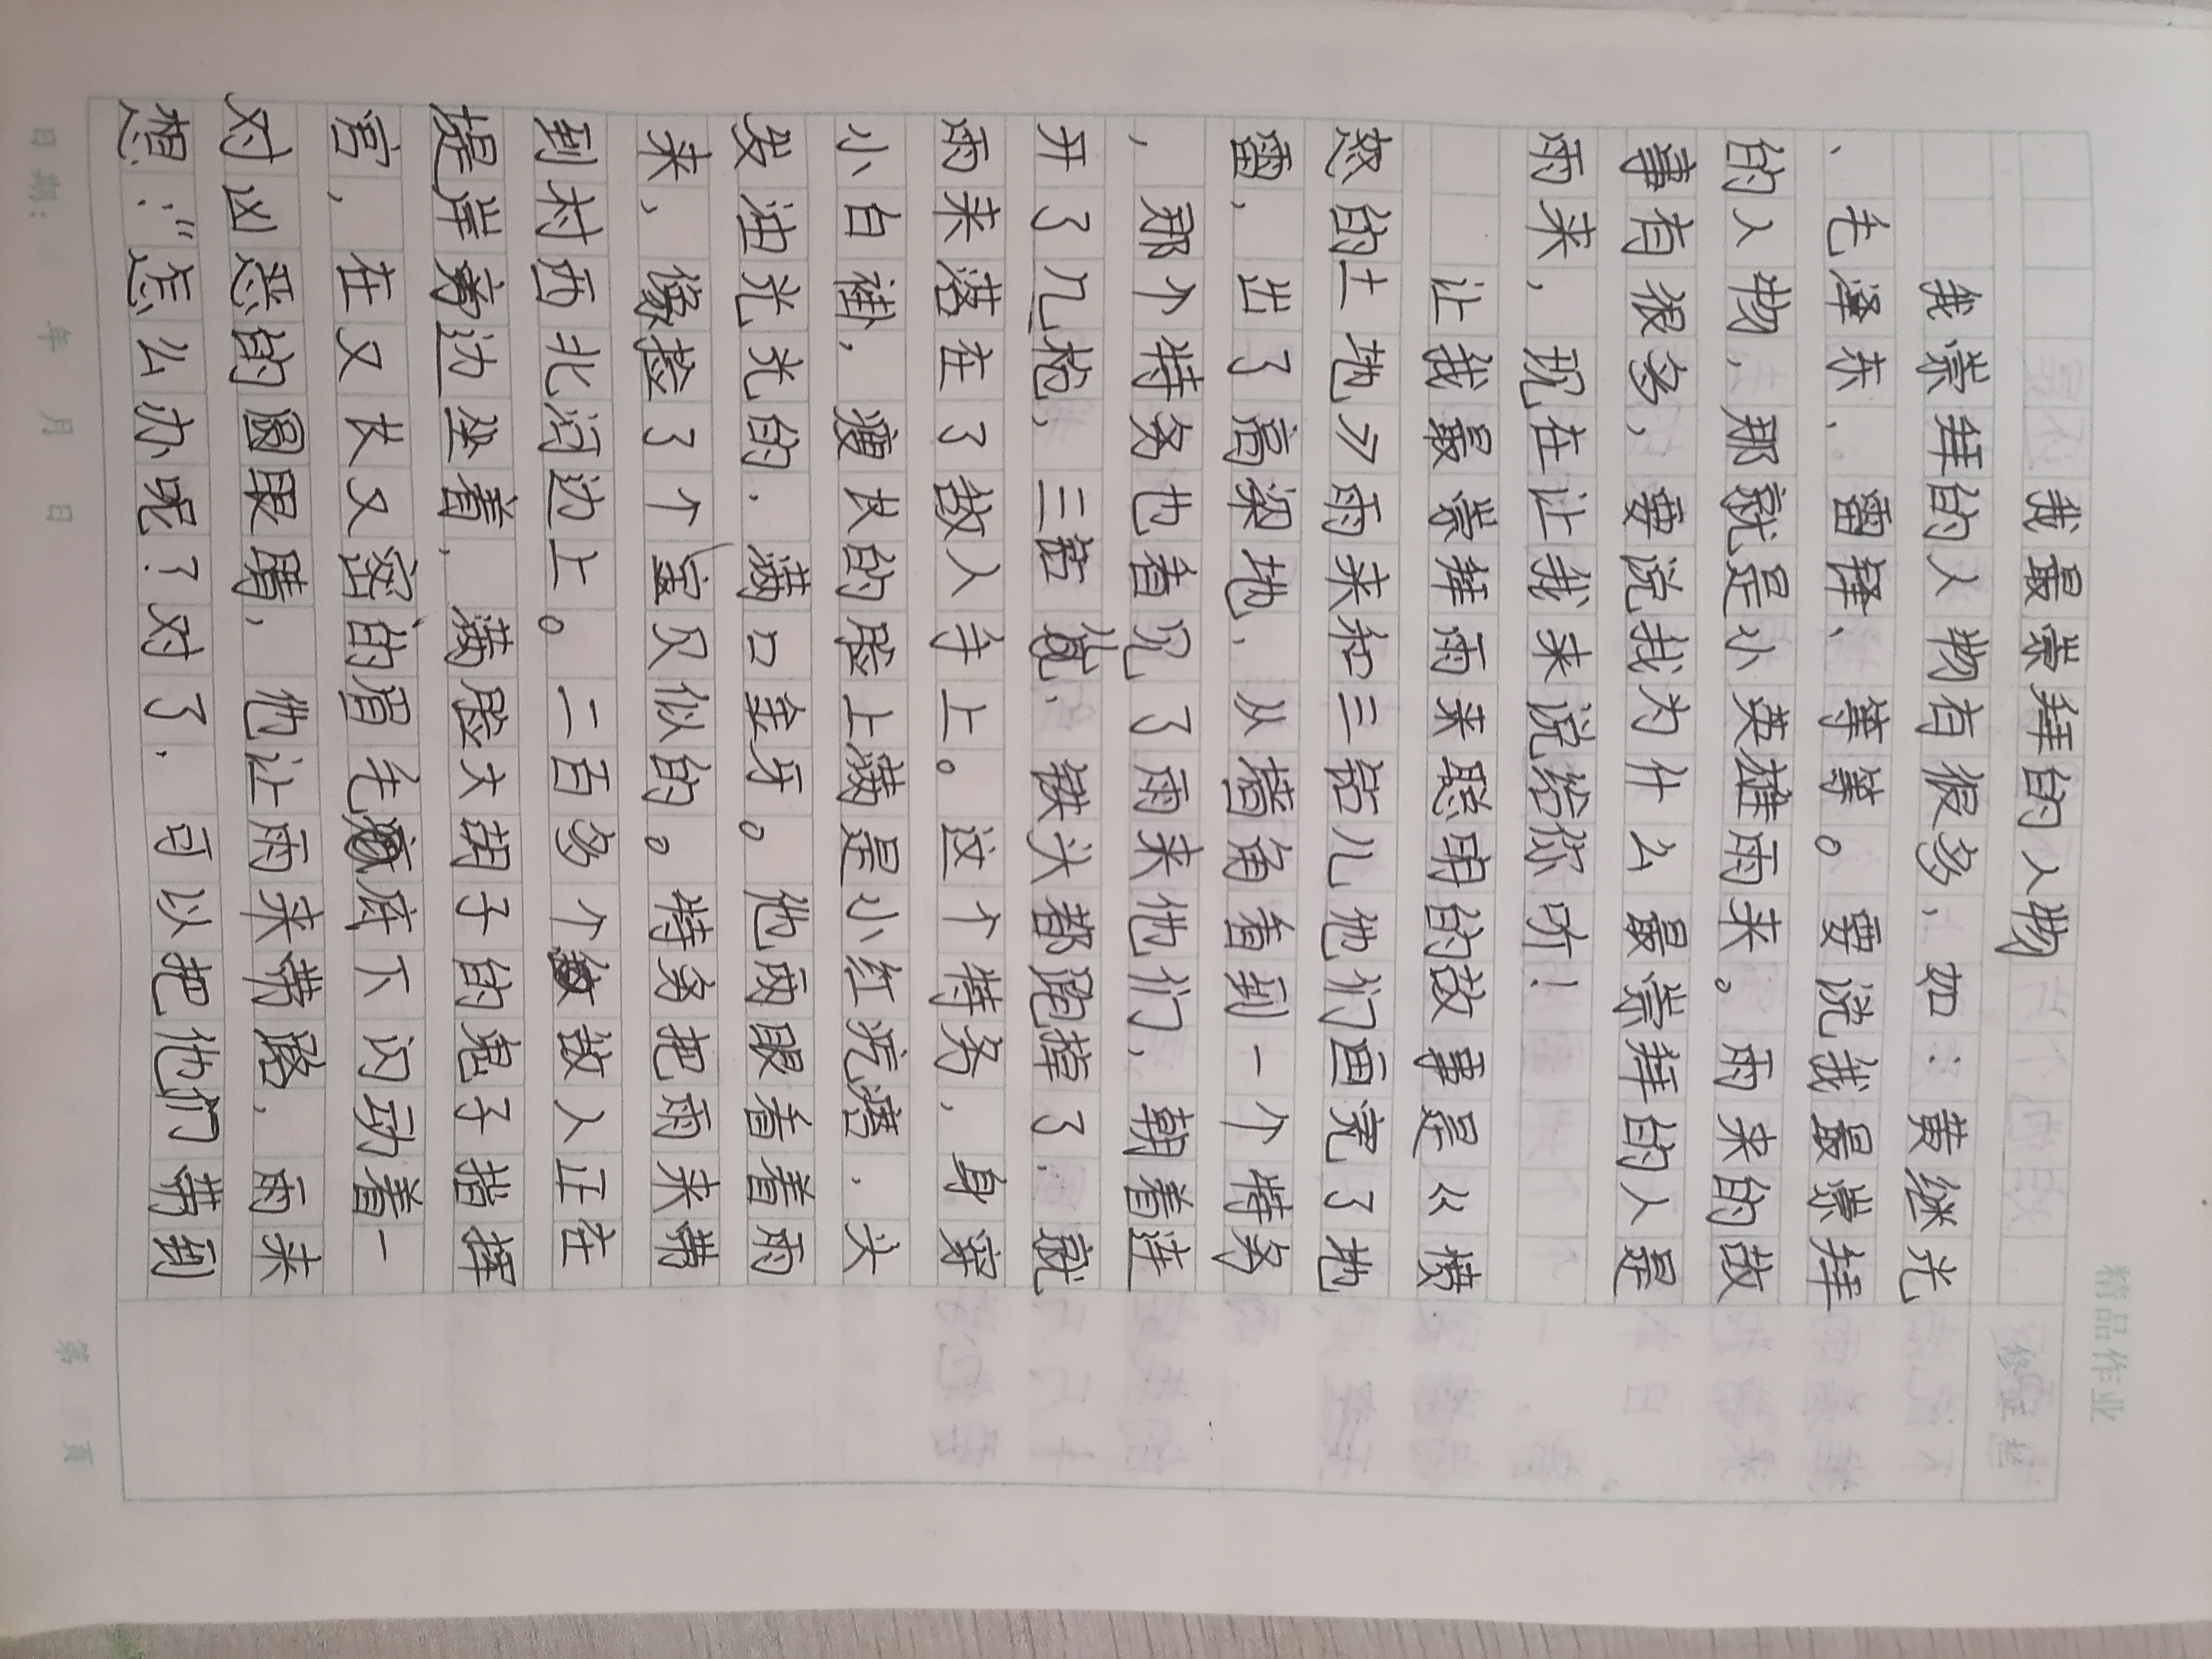 精品作业
修正栏
我最崇拜的人物
我崇拜的人物有很多，如：黄继光
、毛泽东、雷锋、等等。要说我最崇拜
的人物，那就是小英雄雨来。雨来的故
事有很多，要说我为什么最崇拜的人是
雨来，现在让我来说给你听！
让我最崇拜雨来聪明的故事是《愤
怒的土地》雨来和三钻儿他们画完了地
雷，出了高梁地，从墙角看到一个特务
，那个特务也看见了雨来他们，朝着这
开了几枪，三钻儿、铁头都跑掉了．就
雨来落在了敌人手上。这个特务，身穿
小白褂，瘦长的脸上满是小红疙瘩．头
发油光光的．满口金牙。他两眼看着雨
来，像捡了个宝贝似的。特务把雨来带
到村西北河边上。二百多个敌人正在
堤岸旁边坐着，满脸大胡子的鬼子指挥
官，在又长又密的眉毛底下闪动着一
对凶恶的圆眼睛，他让雨来带路，雨来
想：“怎么办呢？对了．可以把他们带到
日期：　年　月　日
第　页